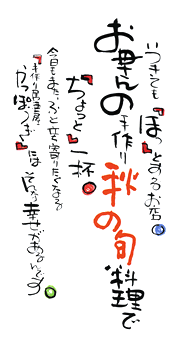 いつきても『ほっ』とするお店
お母さんの手作り秋の旬料理で
『ちょっと』一杯
今日もまた、ふらっと立ち寄りたくなる。
『手作り居酒屋 かっぽうぎ』には
そんな幸せがあるんです。